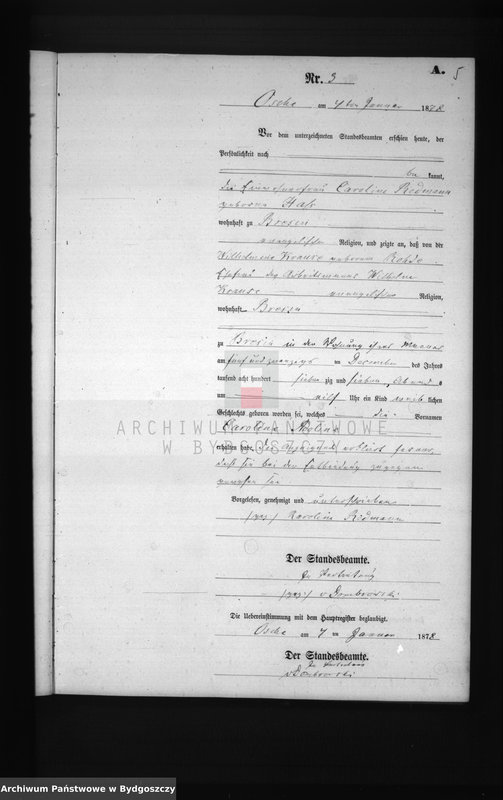 A. 5
Nr. 3
Osche am 7ten Januar 1878.
Vor dem unterzeichneten Standesbeamten erschien heute, der
Persönlichkeit nach
be kannt,
die Caroline Redmann
geborne
wohnhaft zu Brosin
evangelischer Religion, und zeigte an, daß von der
Wilhelmine Krause geborenen Rohde
Ehefrau des Arbeitsmanns Wilhelm
Krause evangelischer Religion,
wohnhaft Brosin
zu Brosin in der Wohnung ihres Mannes
am fünf und zwanzigsten Dezember des Jahres
tausend acht hundert sieben zig und sieben, Abends
um elf Uhr ein Kind weib lichen
Geschlechts geboren worden sei, welches die Vornamen
Caroline
erhalten habe. Die erklärt ferner,
daß sie bei der Entbindung zugegen
gewesen sei
Vorgelesen, genehmigt und unterschrieben
(gez.) Karoline Redmann
Der Standesbeamte.
In Vertretung
(gez.) v Dombrowski
Die Uebereinstimmung mit dem Hauptregister beglaubigt.
Osche am 7 ten Januar 1878.
Der Standesbeamte.
In Vertretung
v Dombrowski
ARCHIWUM PAŃSTWOWE
W BYDGOSZCZY
Archiwum Państwowe w Bydgoszczy